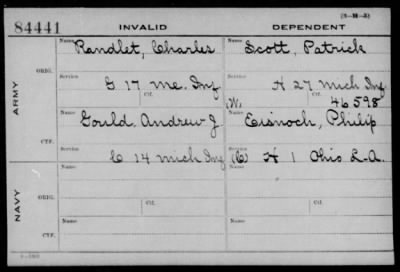 (3-M-3)
84441 INVALID DEPENDENT
ARMY
ORIG.
Name Randlet, Charles Name Scott, Patrick
Service G 17 Me. Inf Service H 27 Mich Inf
Ctf. Ctf.
(W) 46598
CTF.
Name Gould, Andrew J. Name Eisnoch, Philip
Service C 14 Mich Inf Service (C) H 1 Ohio L-A.
NAVY
ORIG.
Name Name
Service Service
Ctf. Ctf.
CTF.
Name Name